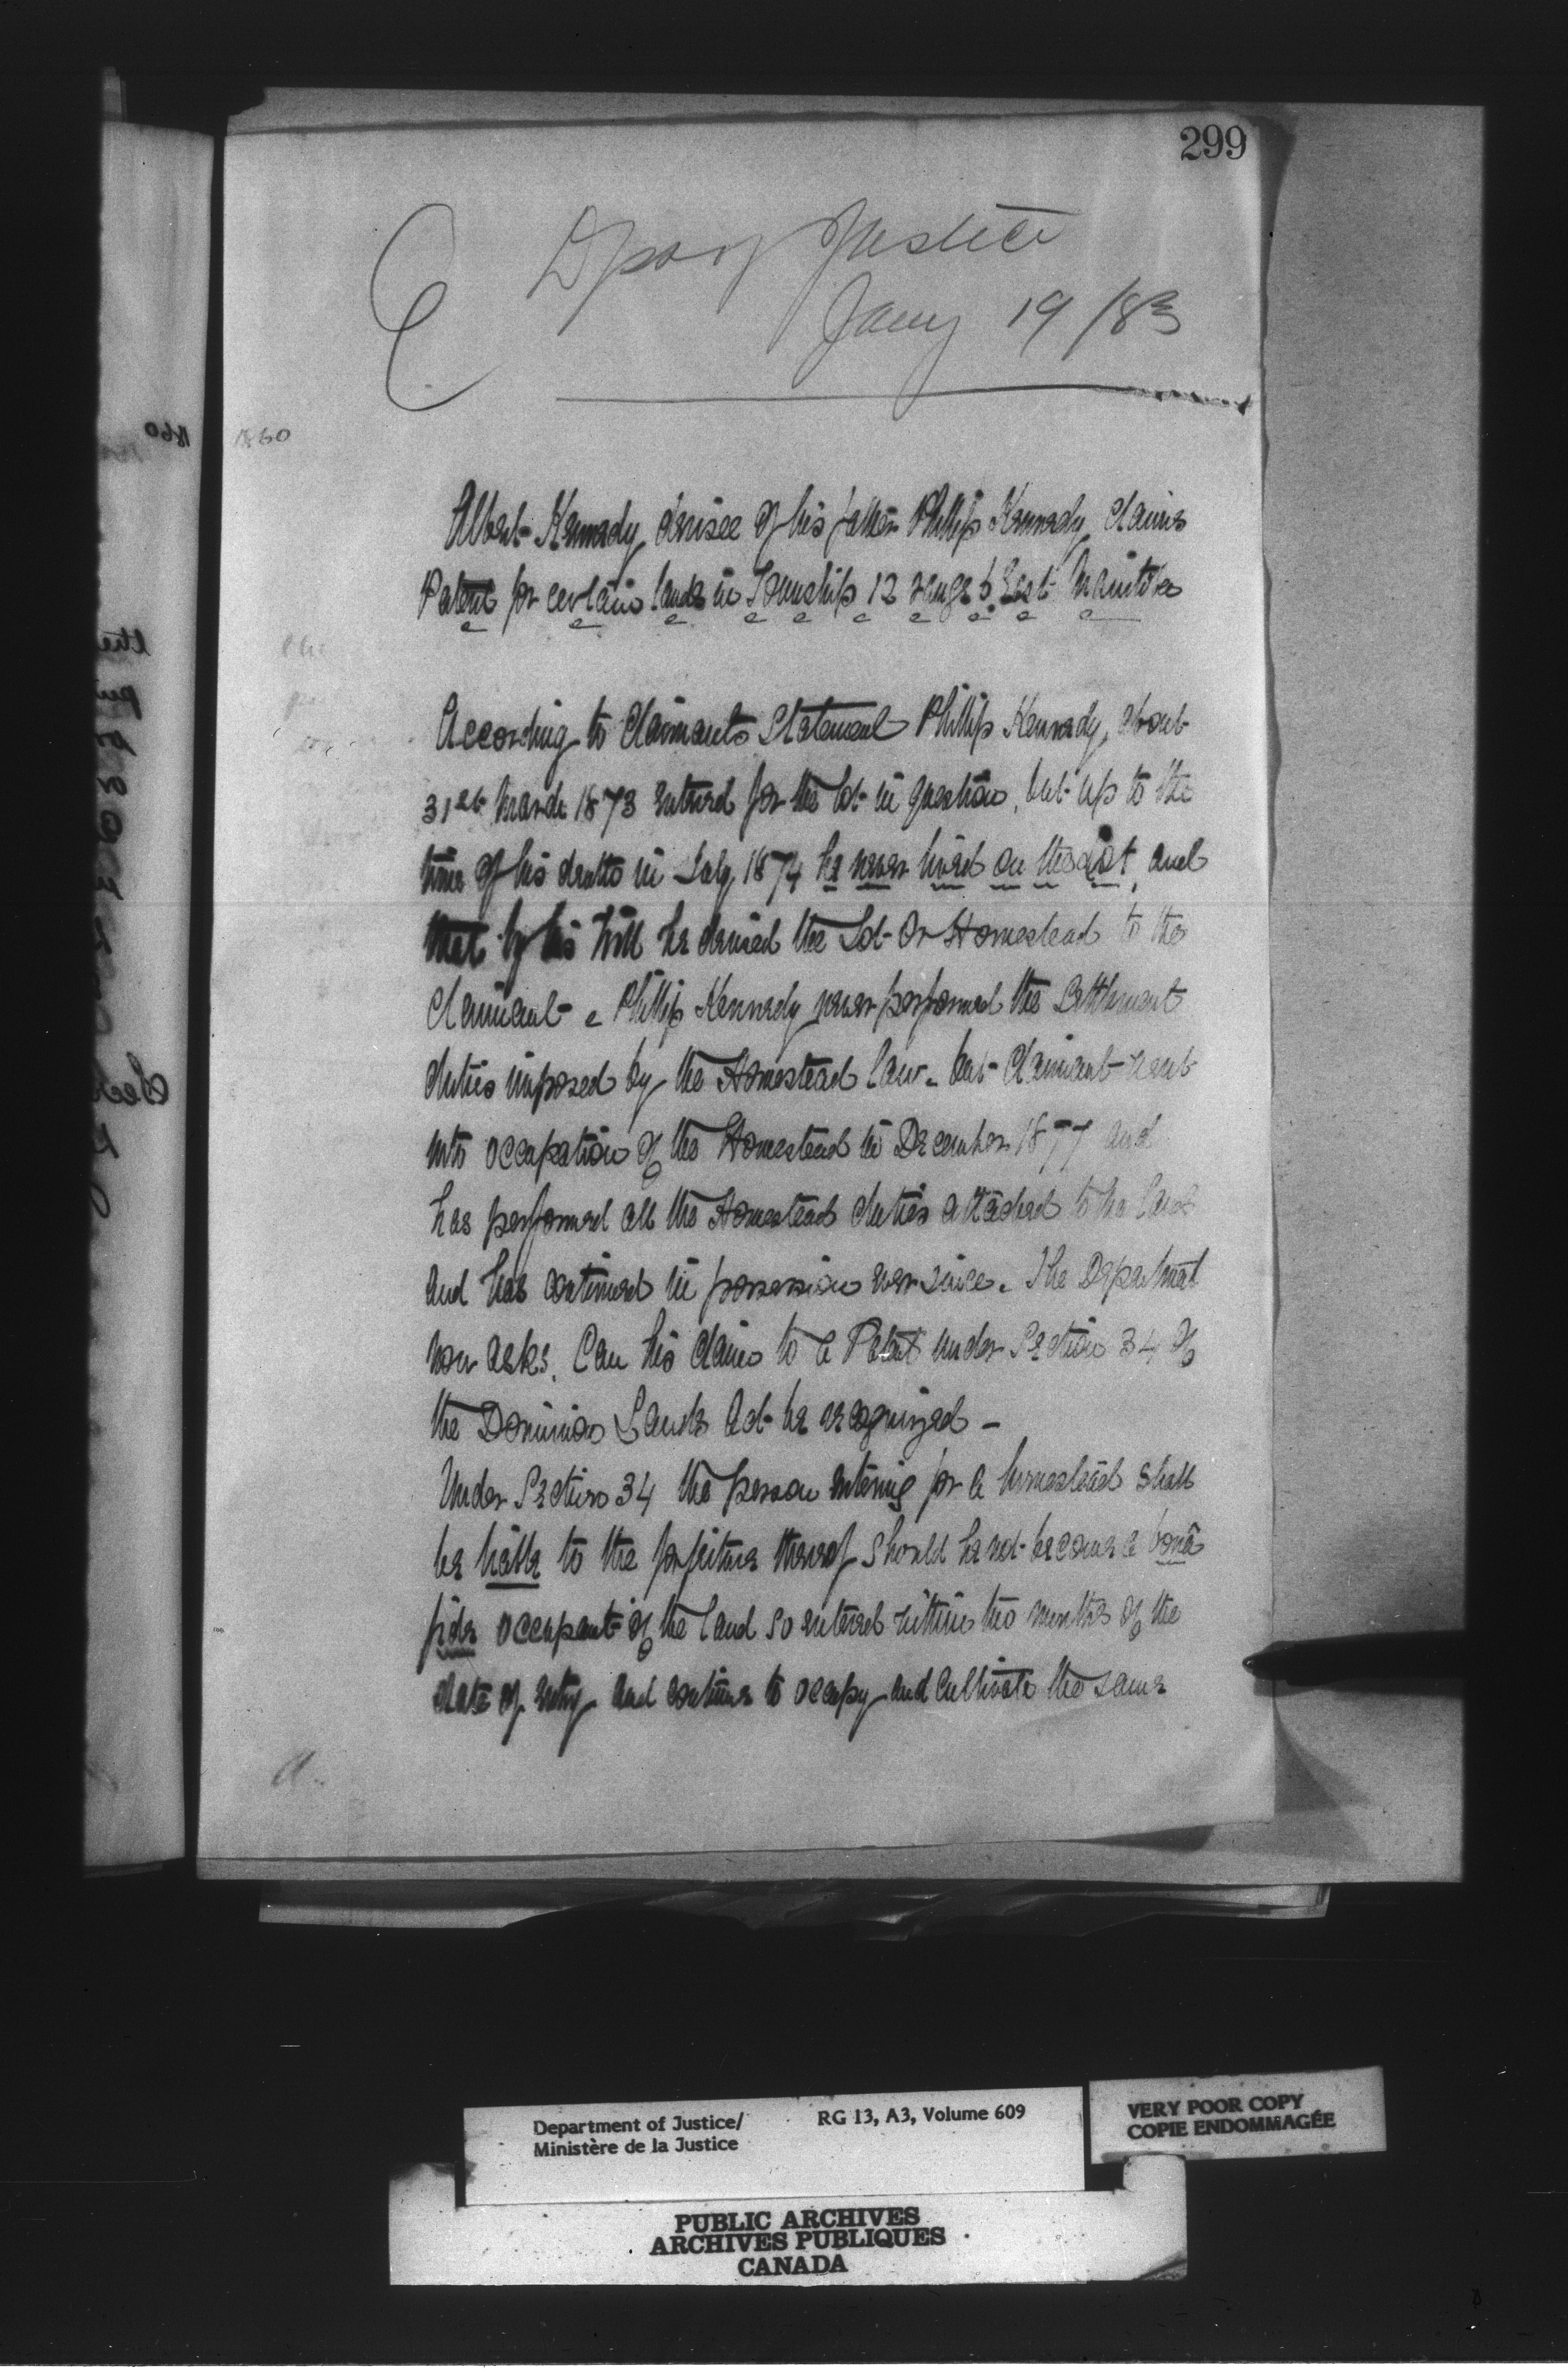 299
Dpt of Justice
Jany 19/83
1860
Albert Kennedy, devisee of his father Phillip Kennedy, claims
Patent for certain lands in Township 12 range 6 East Manitoba
According to Claimants Statement Phillip Kennedy, about
31st March 1873 entered for the lot in question, but up to the
time of his death in July 1874 he never lived on the lot, and
that by his Will he devised the Lot or Homestead to the
Claimant - Phillip Kennedy never performed the Settlement
duties imposed by the Homestead law - but Claimant went
into occupation of the Homestead in December 1877 and
has performed all the Homestead duties attached to the land
and has continued in possession ever since. The Department
now asks. Can his claim to a Patent under Section 34 of
the Dominion Lands Act be recognized -
Under Section 34 the person entering for a homestead shall
be liable to the forfeiture thereof should he not become a bonâ
fide occupant of the land so entered within two months of the
date of entry and continue to occupy and cultivate the same
Department of Justice/
Ministère de la Justice
RG 13, A3, Volume 609
VERY POOR COPY
COPIE ENDOMMAGÉE
PUBLIC ARCHIVES
ARCHIVES PUBLIQUES
CANADA